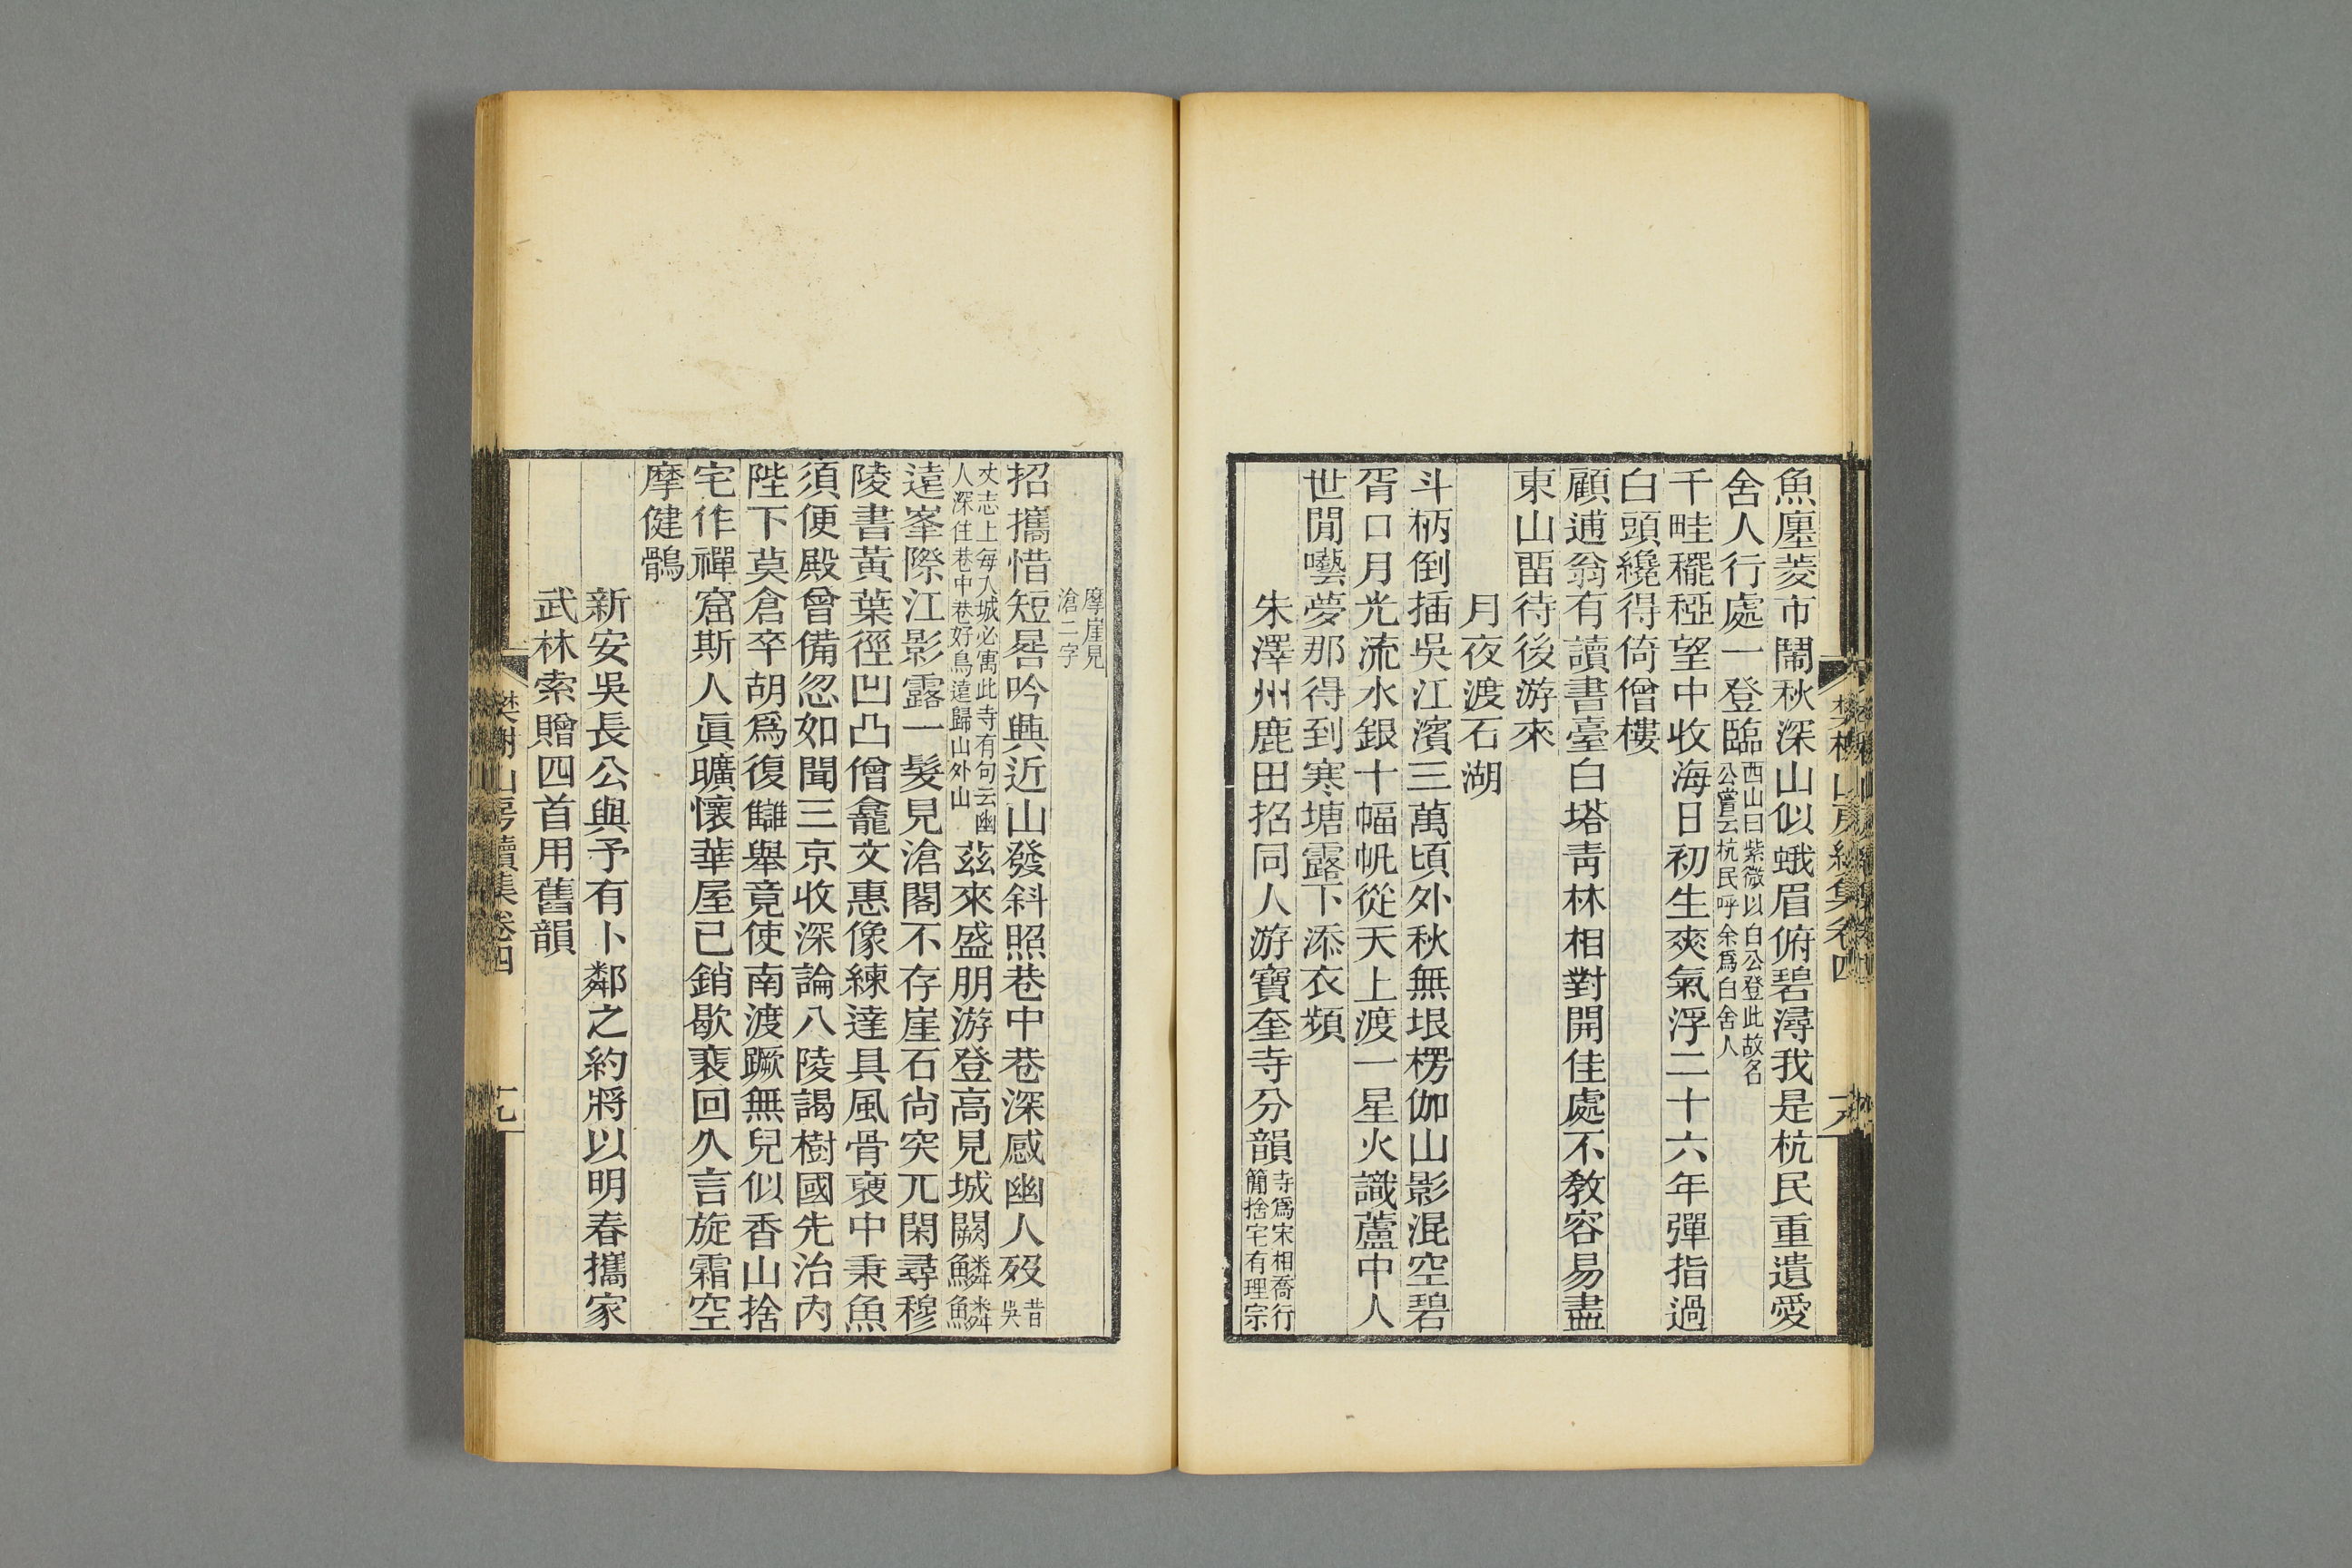 魚廛菱市鬧秋深山似蛾眉俯碧潯我是杭民重遺愛
舍人行處一登臨西山曰紫微以白公登此故名公嘗云杭民呼余爲白舍人
千畦䆉稏望中收海日初生爽氣浮二十六年彈指過
白頭纔得倚僧樓
顧逋翁有讀書臺白塔靑林相對開佳處不敎容易盡
東山畱待後游來
月夜渡石湖
斗柄倒插吳江濱三萬頃外秋無垠楞伽山影混空碧
胥口月光流水銀十幅帆從天上渡一星火識蘆中人
世閒囈夢那得到寒塘露下添衣蘋
朱澤州鹿田招同人游寶奎寺分韻寺爲宋相喬行簡捨宅有理宗
樊榭山房續集卷四
摩崖見滄二字
招攜惜短晷吟興近山發斜照巷中巷深感幽人歿昔吳
丈志上每入城必寓此寺有句云幽人深住巷中巷好鳥遠歸山外山茲來盛朋游登高見城闕鱗鱗
遠峯際江影露一髮見滄閣不存崖石尙突兀閑尋穆
陵書黃葉徑凹凸僧龕文惠像練達具風骨裛中秉魚
須便殿曾備忽如聞三京收深論八陵謁樹國先治內
陛下莫倉卒胡爲復讎舉竟使南渡蹶無兒似香山捨
宅作禪窟斯人眞曠懷華屋已銷歇裴回久言旋霜空
摩健鶻
新安吳長公與予有卜鄰之約將以明春攜家
武林索贈四首用舊韻
樊榭山房續集卷四
十九